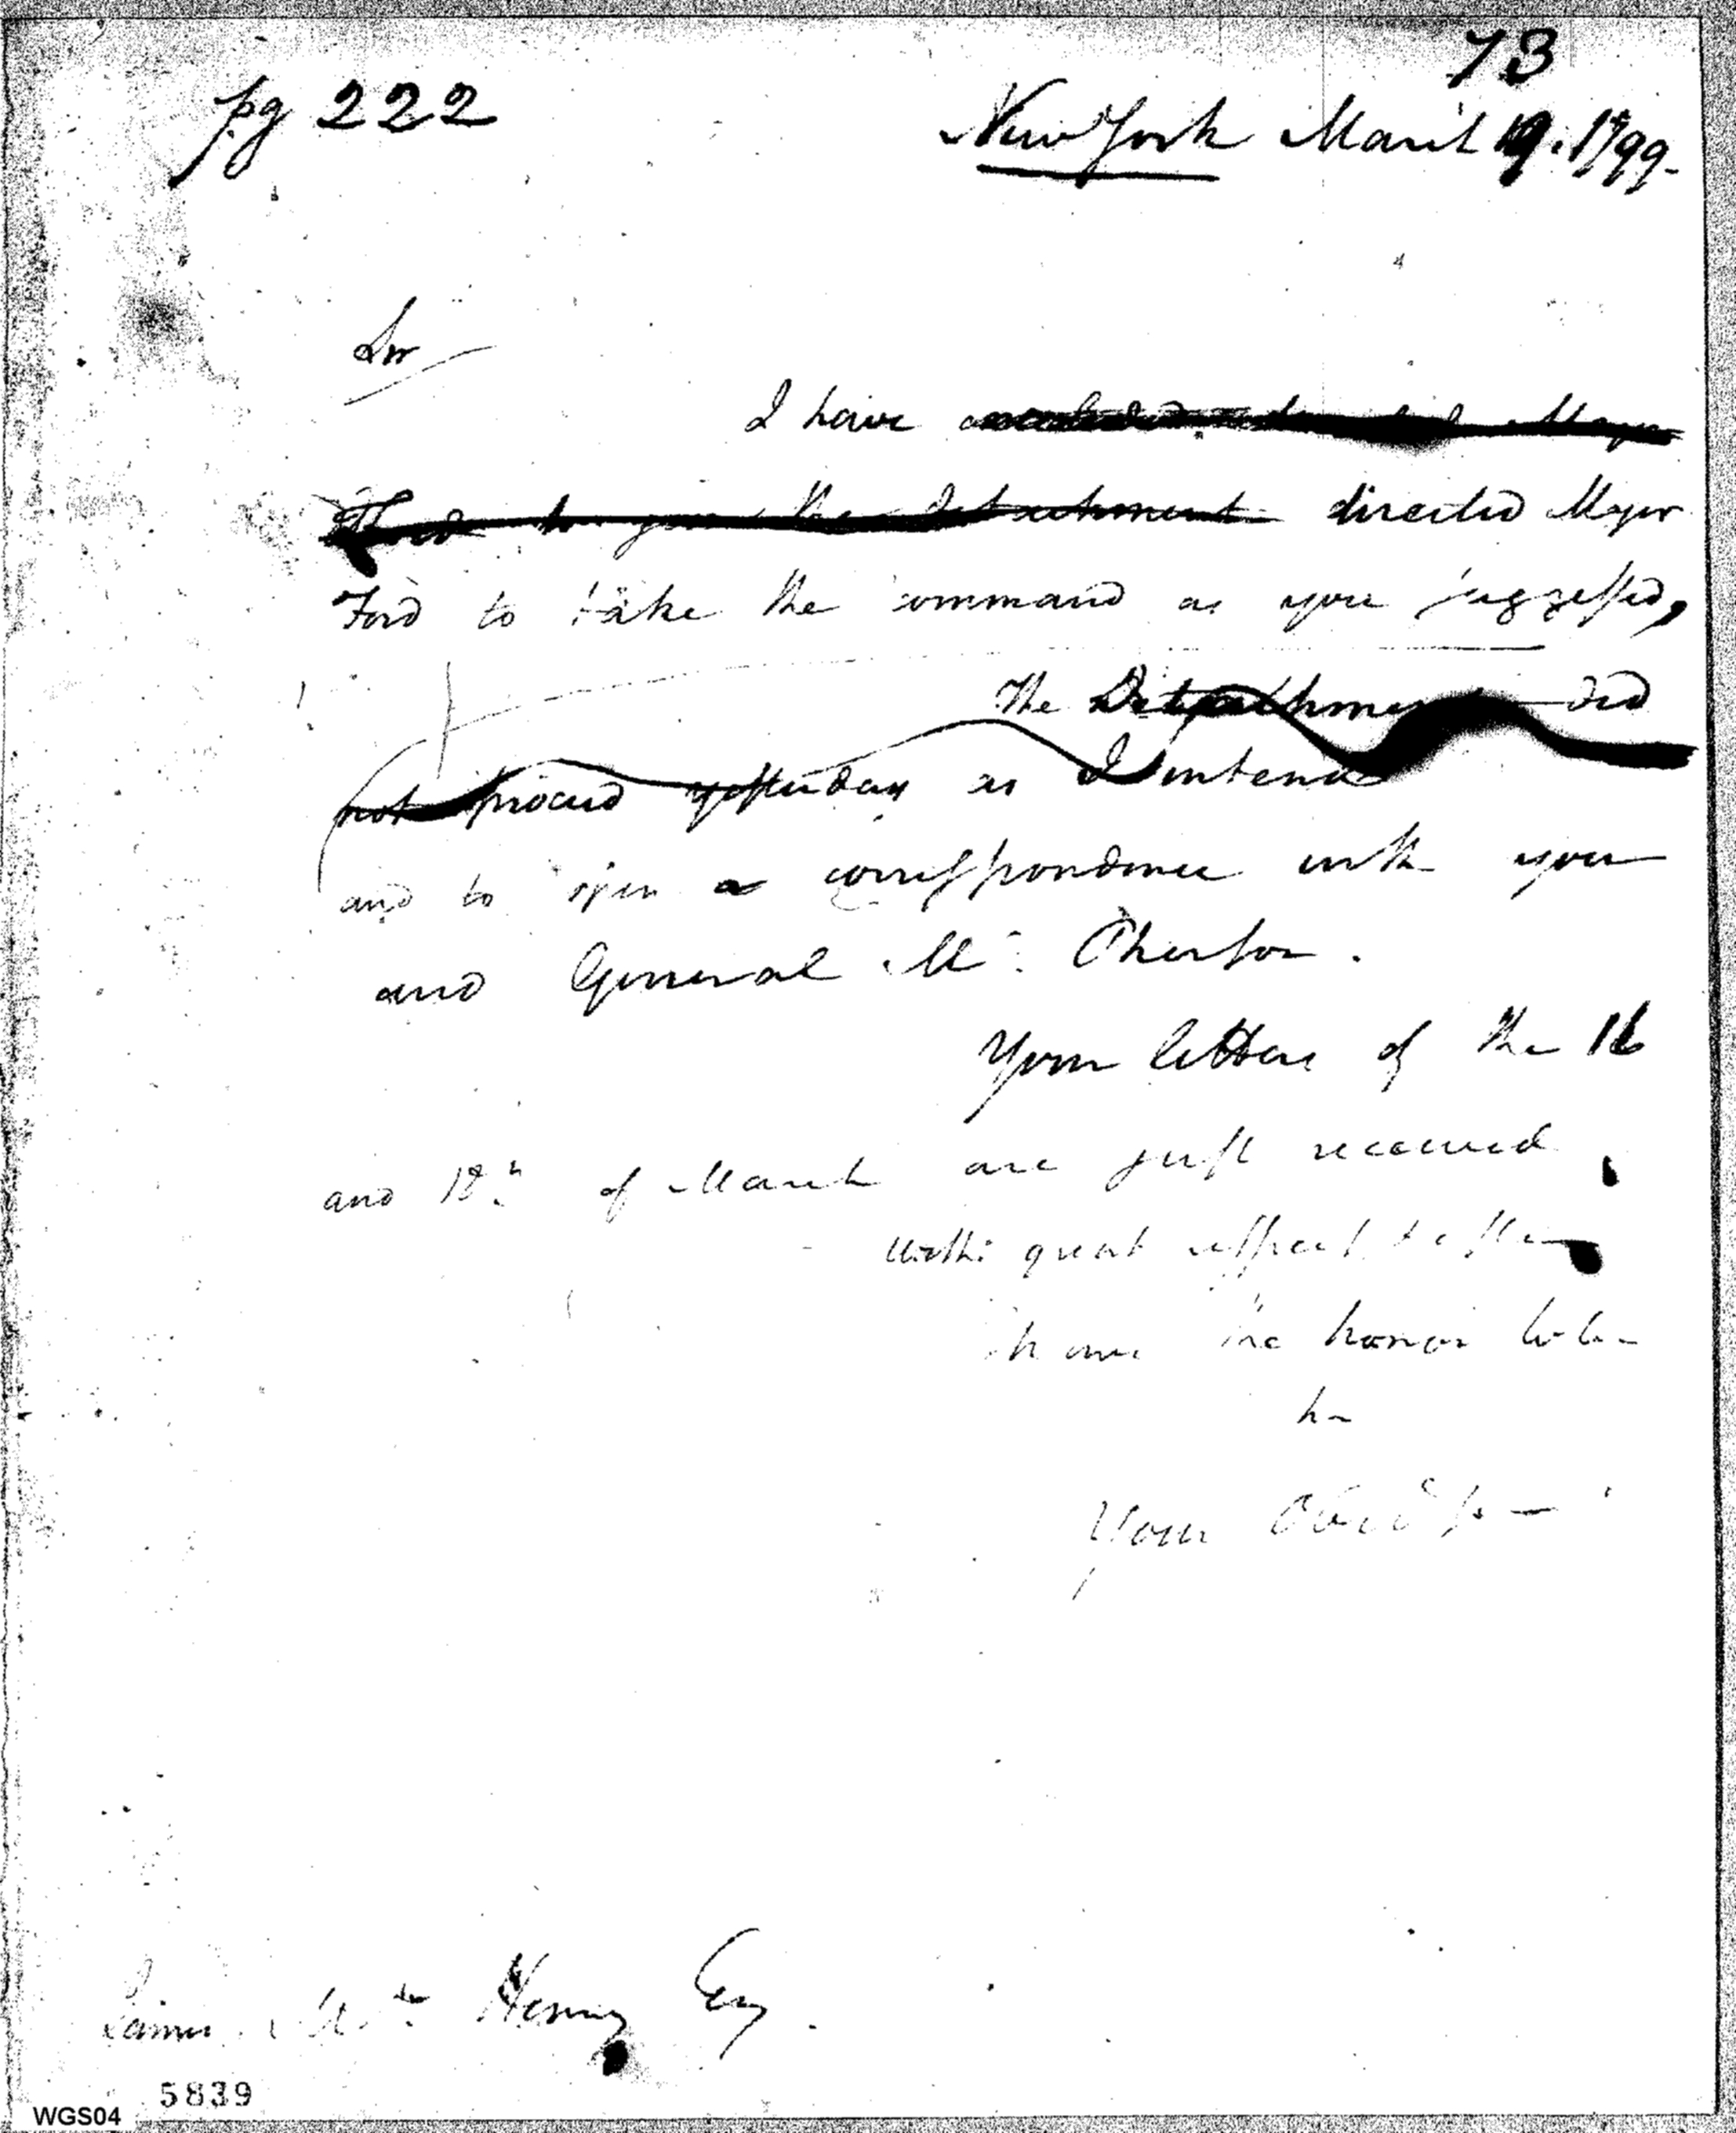 73
pg 222
New York March 19. 1799.
Sir
I have Major
Ford to join the detachment directed Major
Ford to take the command as you suggested,
The Detachment did
not proceed yesterday as I intend
and to open a correspondence with you
and General Mc. Pherson.
Your letters of the 16
and 18th of March are just received
With great respect & esteem
have the honor to be
Your Obed
James Mc Henry Esq.
5839
WGS04